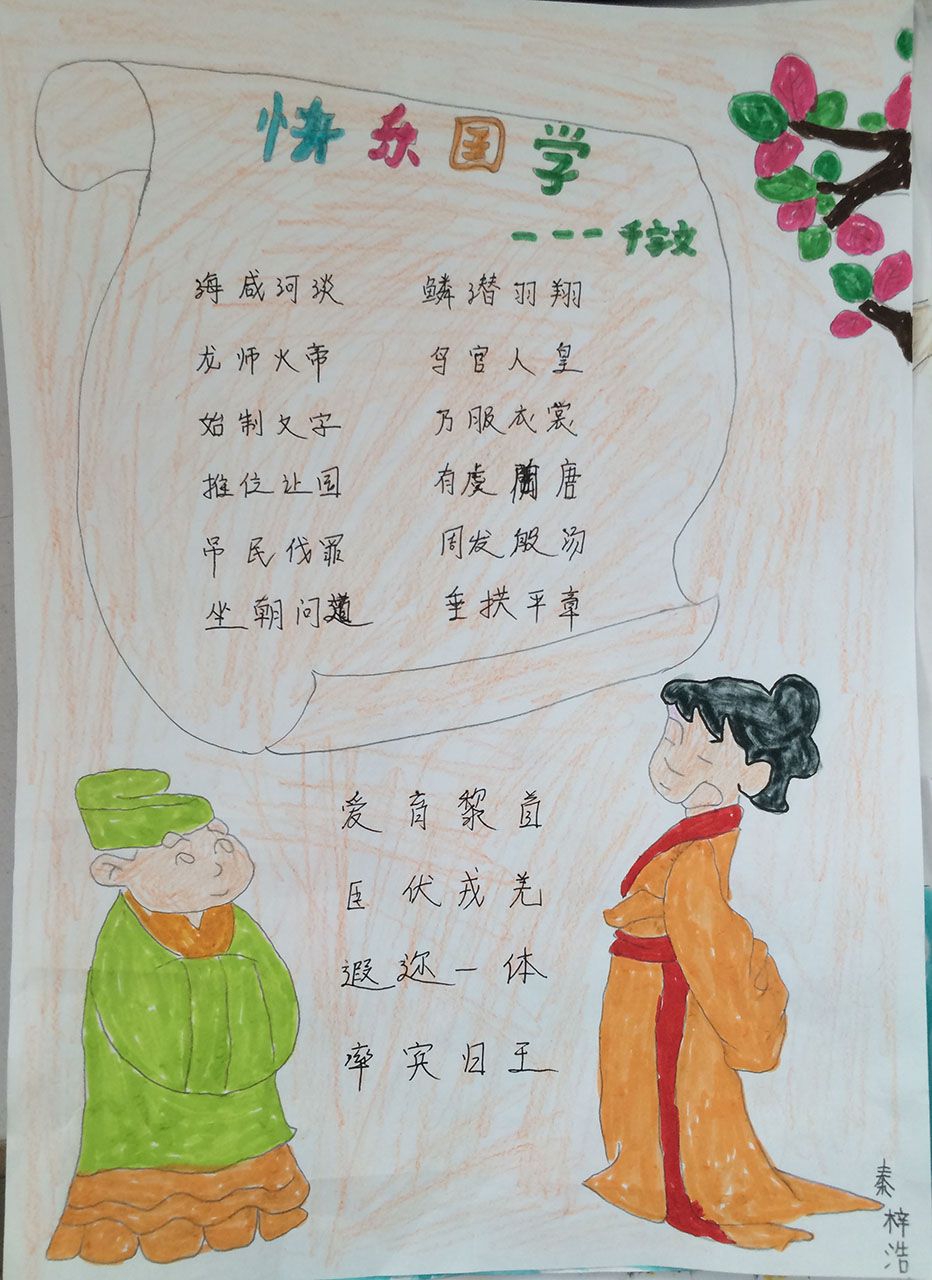 快乐国学
---千字文
海咸河淡 鳞潜羽翔
龙师火帝 鸟官人皇
始制文字 乃服衣裳
推位让国 有虞陶唐
吊民伐罪 周发殷汤
坐朝问道 垂拱平章
爱育黎首
臣伏戎羌
遐迩一体
率宾归王
秦梓浩